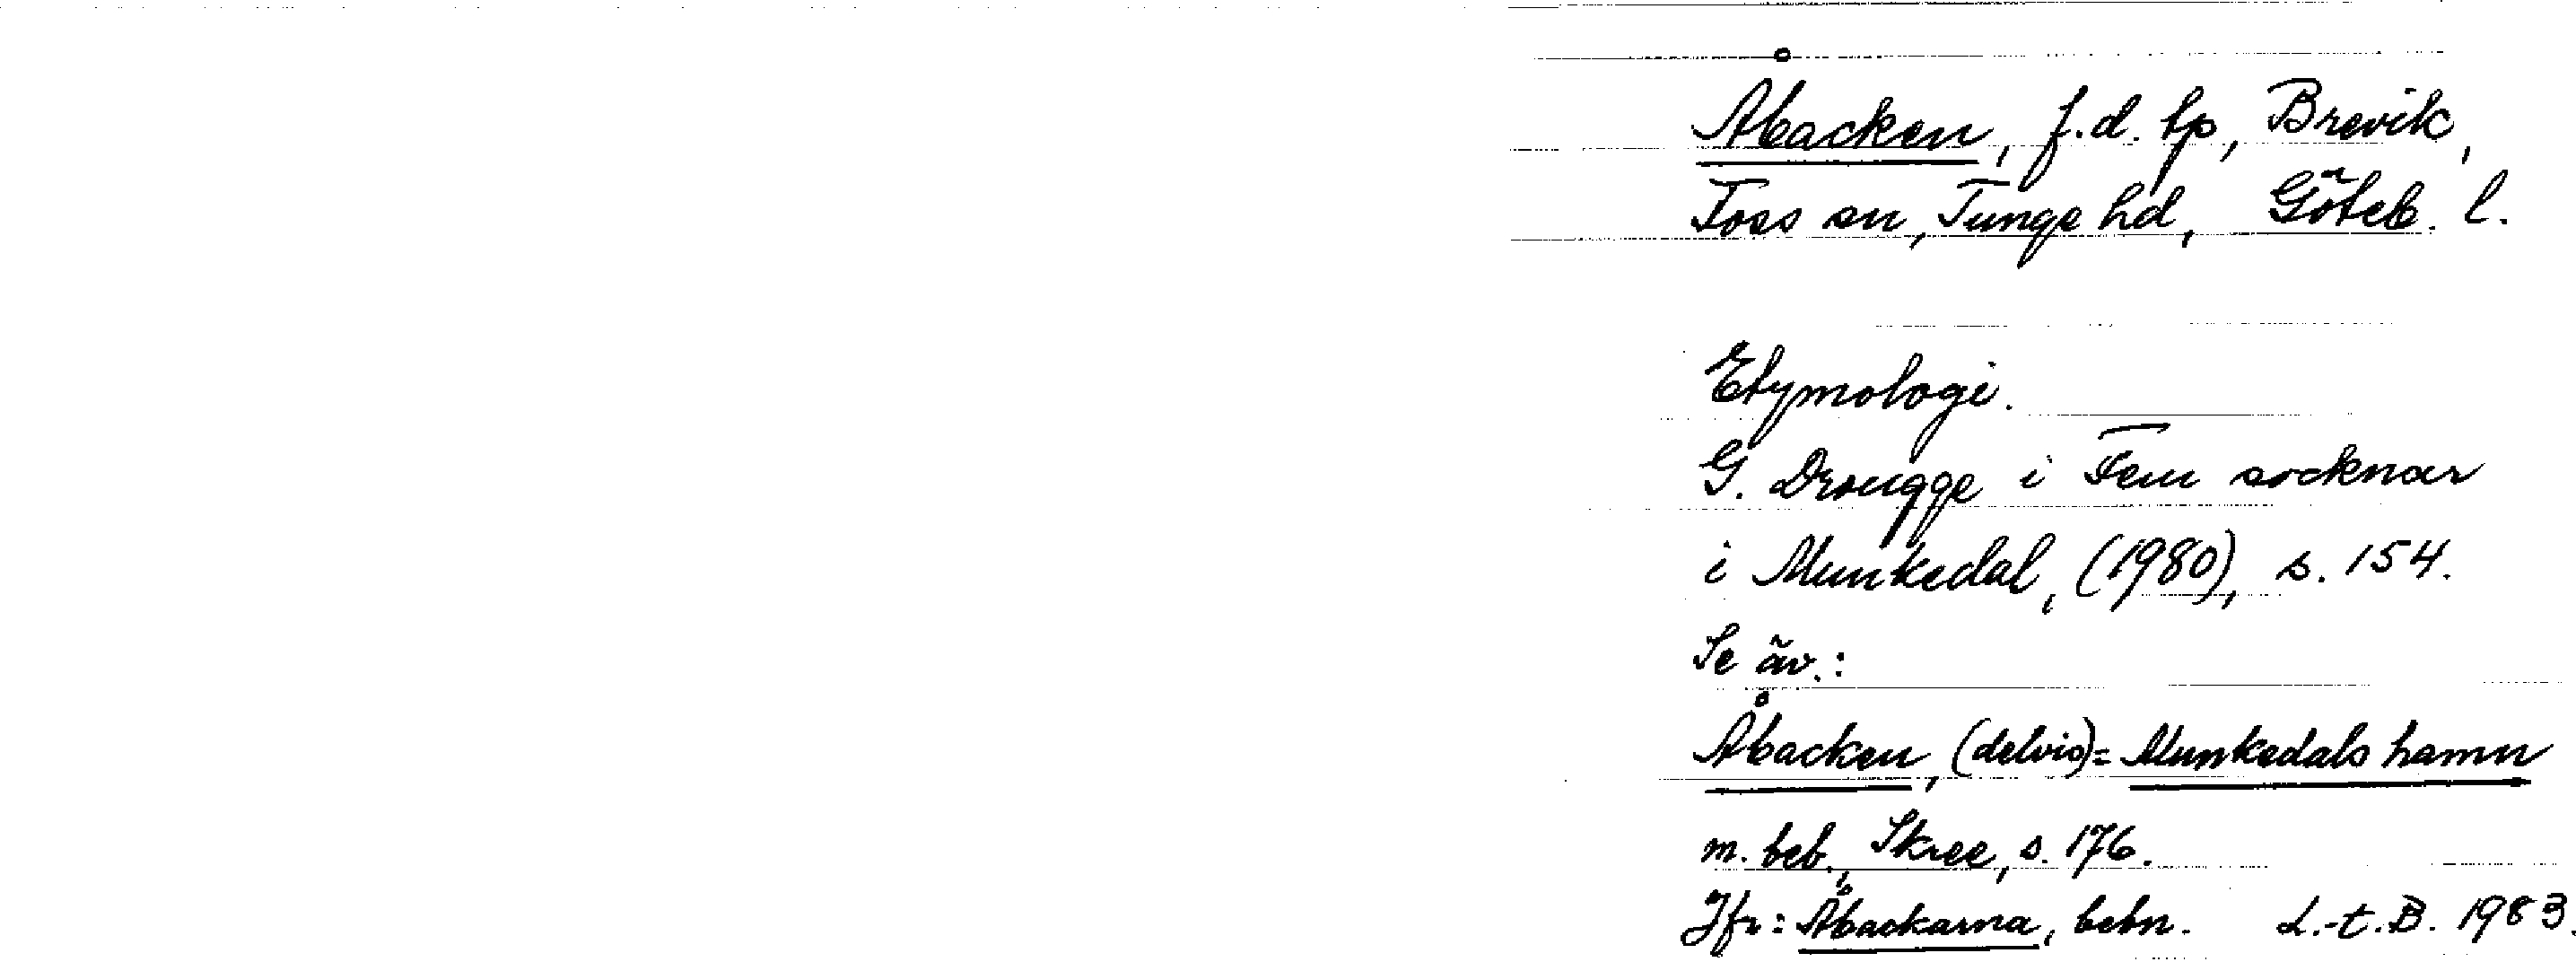 Åbacken, f.d. tp, Brevik,
Foss sn, Tunge hd, Göteb. l.
Etymologi.
G. Drougge i Fem socknar
i Munkedal, (1980), s. 154.
Se äv.:
Åbacken, (delvis)= Munkedals hamn
m. beb., Skree, s. 176.
Jfr: Åbackarna, bebn. L.-t. B. 1983.